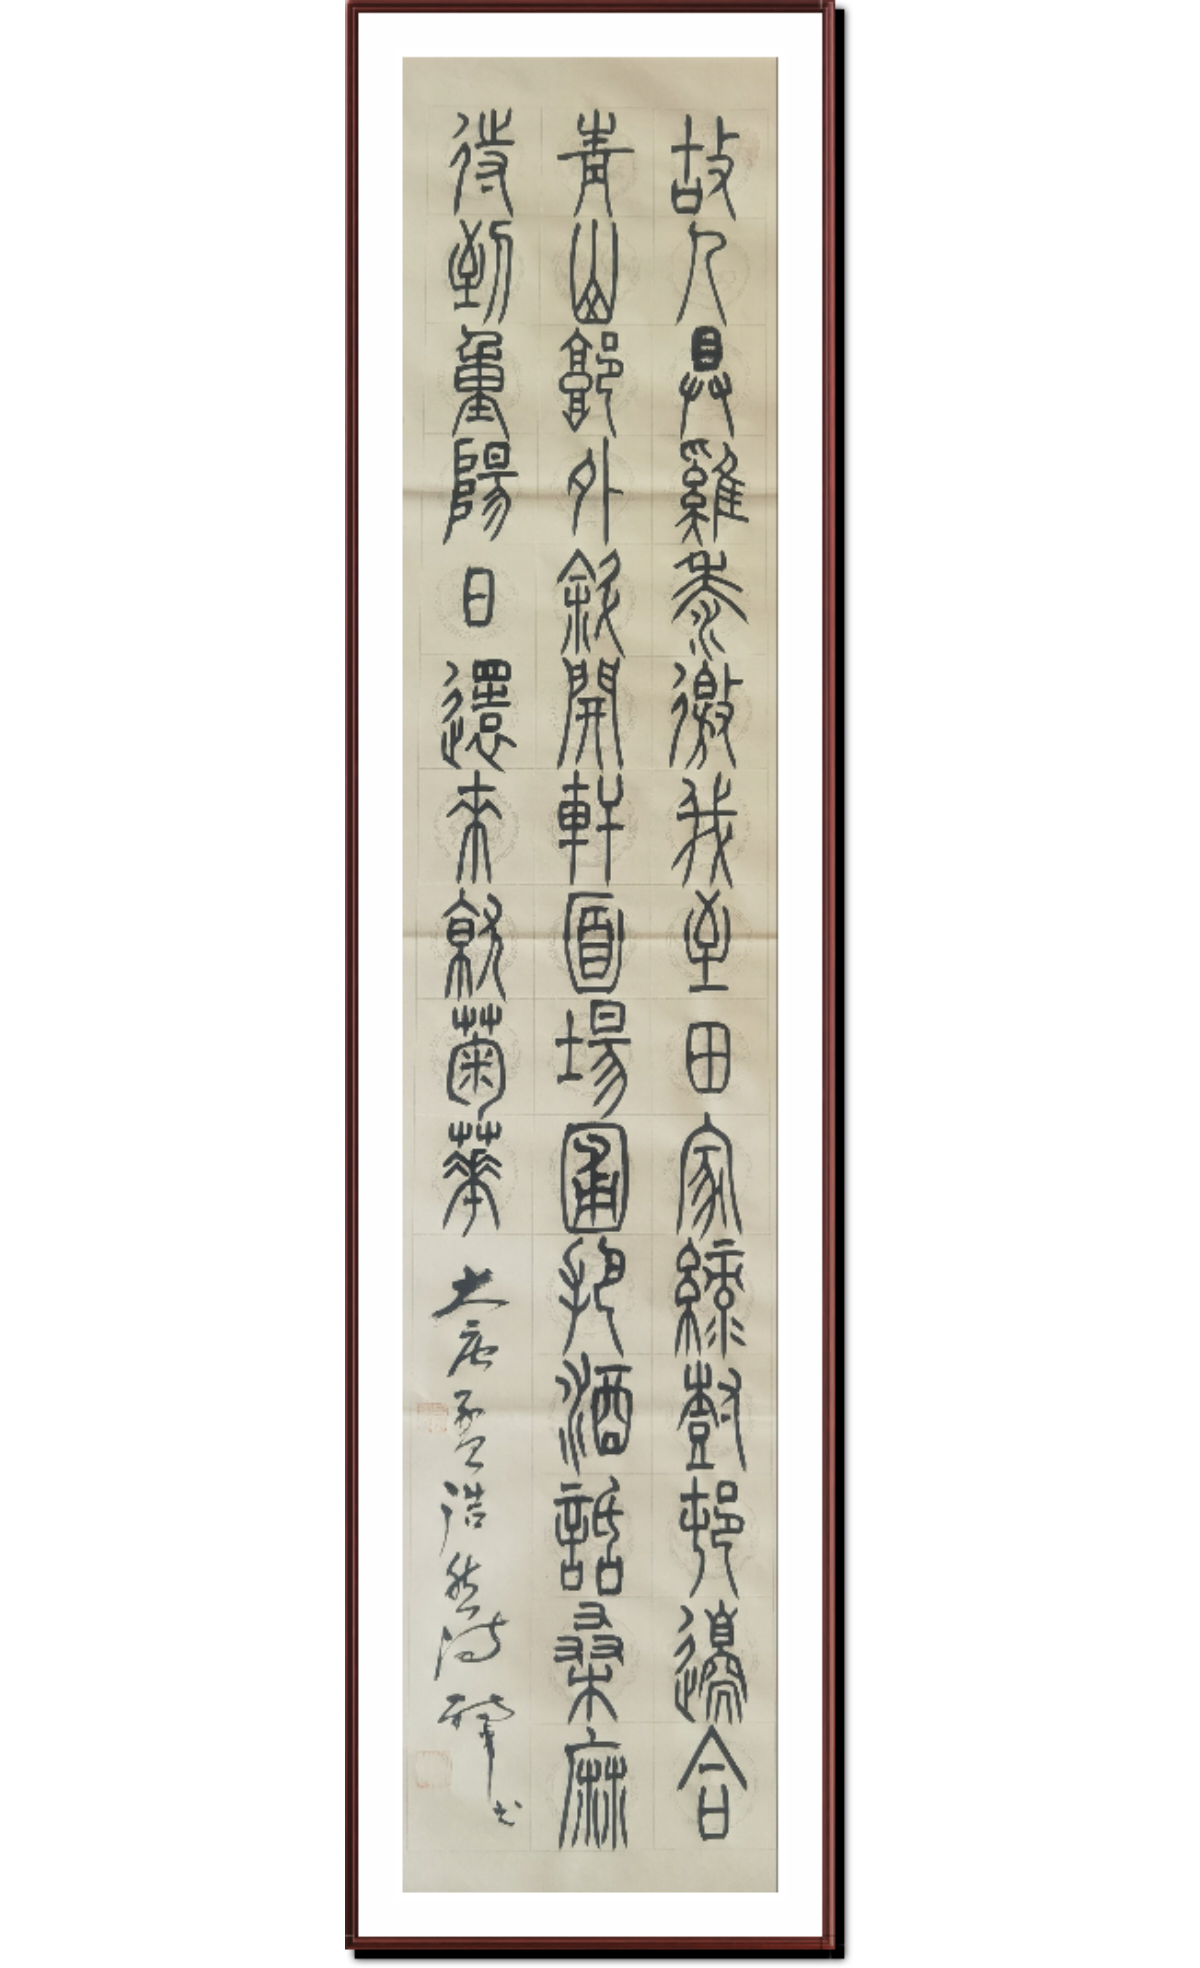 故人具雞黍徼我至田家綠樹邨邊合
青山郭外斜開軒面場圃把酒話桑麻
待到重陽日還來就菊華 大唐孟浩然詩 書